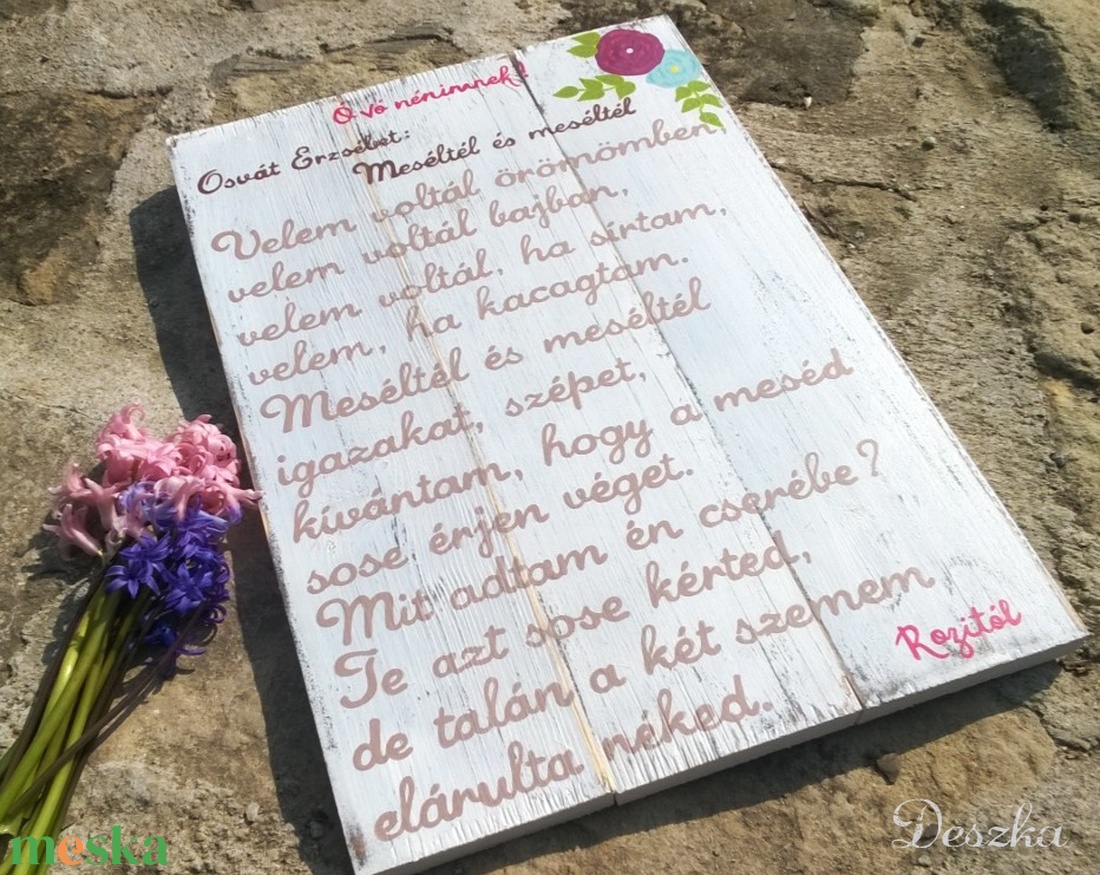 Óvó nénimnek!
Osvát Erzsébet:
Meséltél és meséltél
Velem voltál örömömben
velem voltál bajban,
velem voltál, ha sírtam,
velem, ha kacagtam.
Meséltél és meséltél
igazakat, szépet,
kívántam, hogy a meséd
sose érjen véget.
Mit adtam én cserébe?
Te azt sose kérted,
de talán a két szemem
elárulta néked.
Rozitól
meska
Deszka